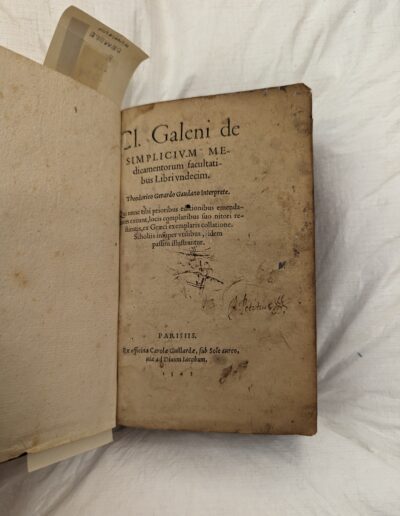 Cl. Galeni de
SIMPLICIVM ME-
dicamentorum facultati-
bus Libri vndecim.
Theodorico Gerardo Gaudano Interprete.
Qui nunc tibi prioribus editionibus emenda-
exeunt, locis compluribus suo nitori re-
ex Græci exemplaris collatione.
Scholiis insuper vtilibus, ijdem
passim illustrantur.
PARISIIS,
Ex officina Carolæ Guillardæ, sub Sole aureo,
via ad Diuum Iacobum.